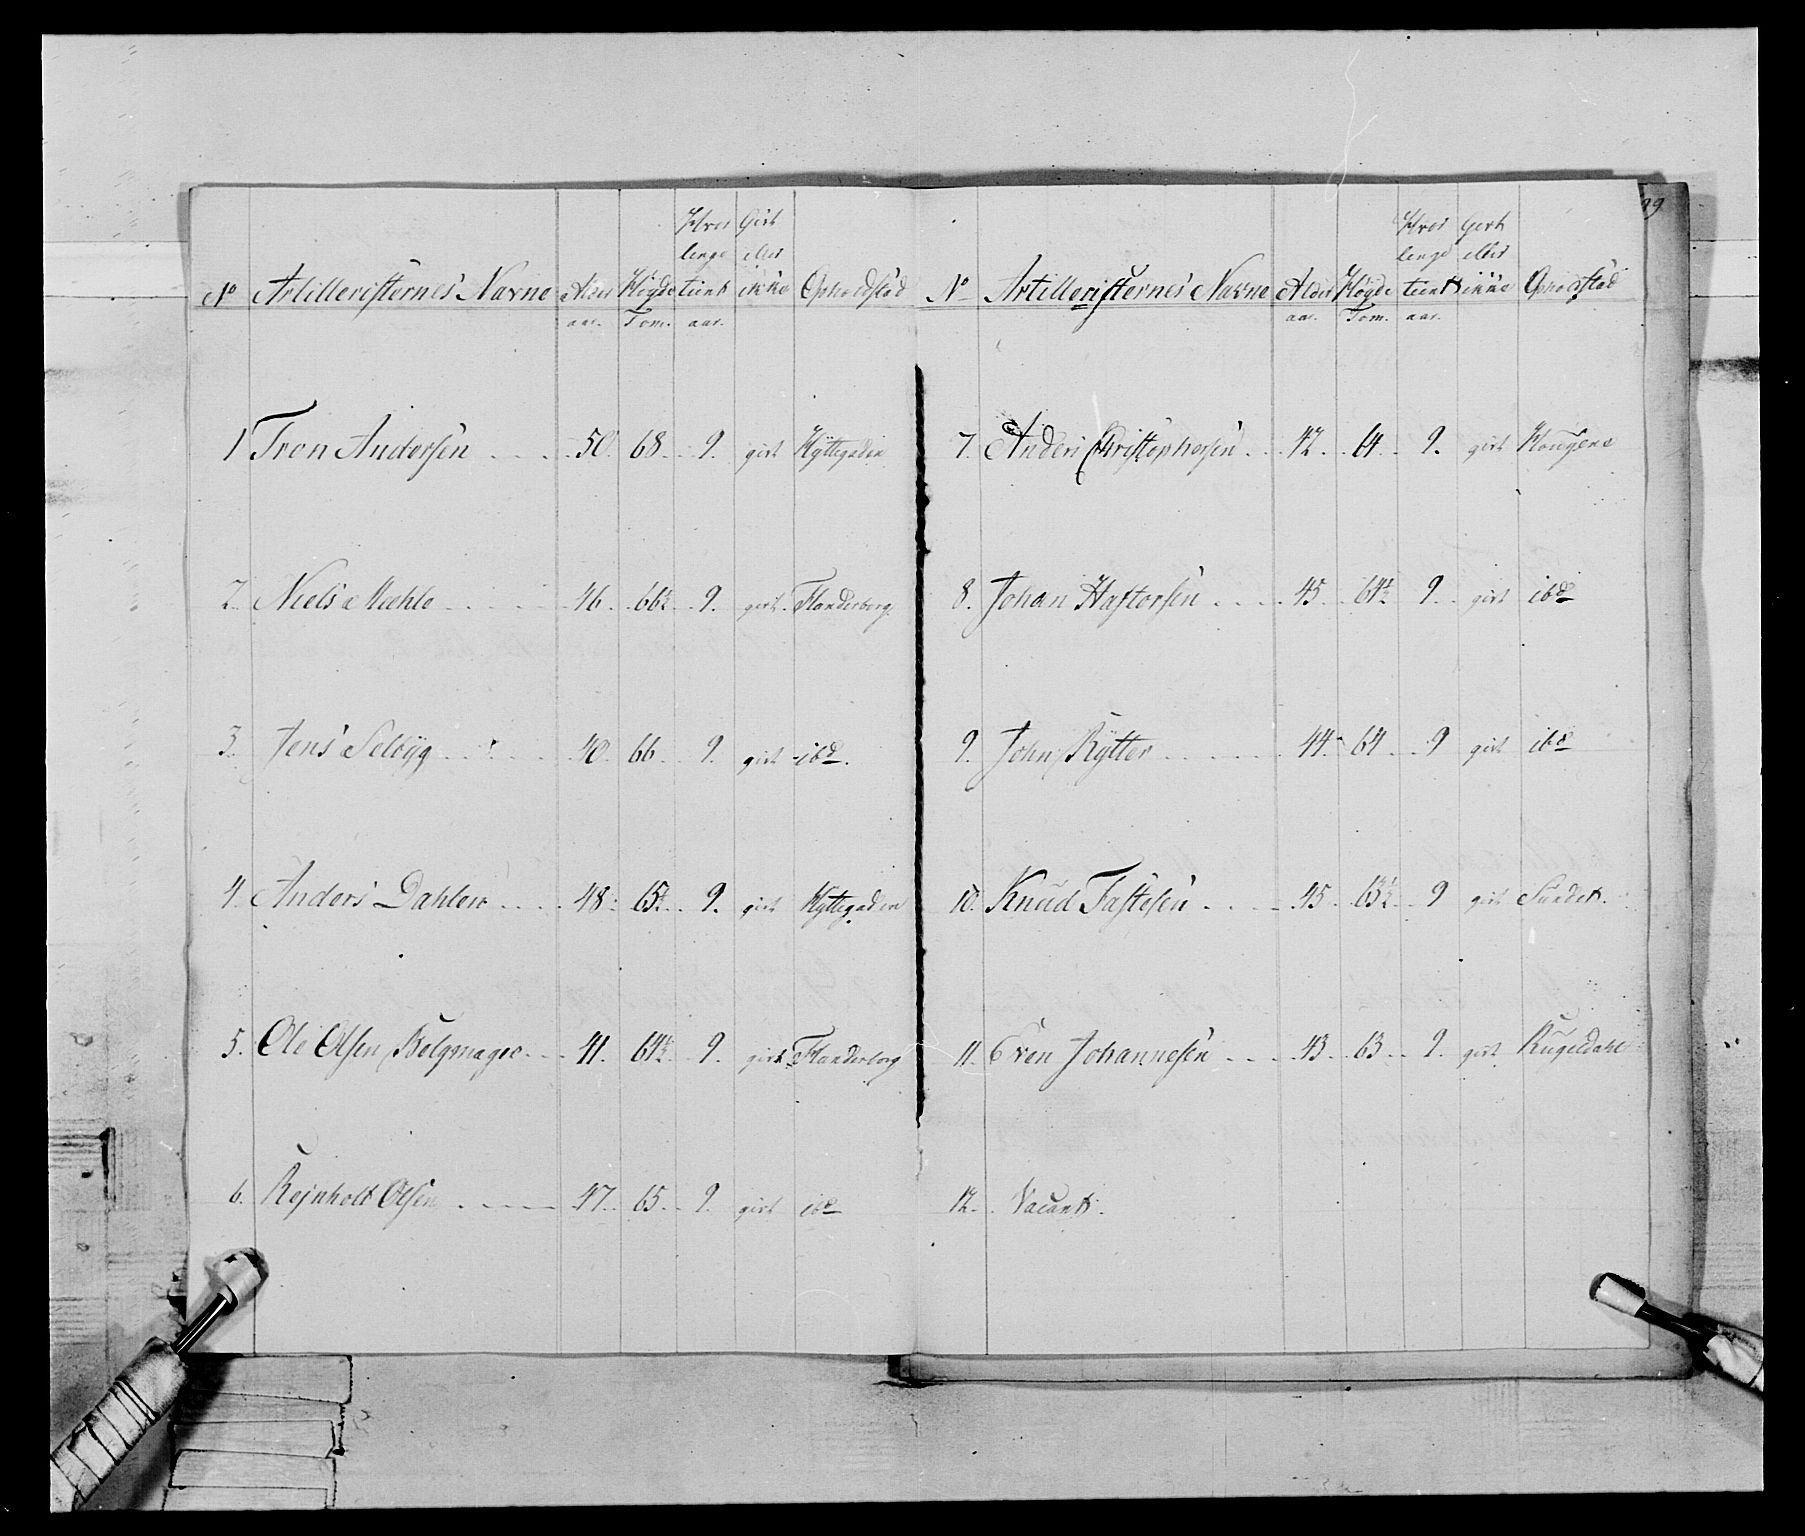 99
Hvor Givt
lenge eller
No Artilleristernes Navne Alder Høyde tient ikke Opholdstæd
aar. Tom. aar.
1 Tron Andersen 50. 68. 9. givt Hyttegaden
2. Niels Mæhle 46. 66½ 9. givt. Flanderborg.
3. Jens Selbÿg 40. 66. 9. givt ibd.
4. Anders Dahlen 48. 65½. 9. givt Hyttegaden
5. Ole Olsen Belgmager 41. 64½ 9. givt Flanderborg
6. Rejnholt Olsen 47. 65. 9. givt ibd
Hvor Givt
lenge eller
No Artilleristernes Navne Alder Høyde tient ikke Opholdstæd
aar. Tom. aar.
7. Anders Christophersen 42. 64. 9. givt Hougene
8. Johan Haftorsen 45. 64½. 9. givt ibd
9. John Rÿtter 44. 64. 9 givt ibd
10. Knud Fastesen 45. 63½. 9 givt Sundet.
11. Even Johannesen 43. 63. 9. givt
12. Vacant.